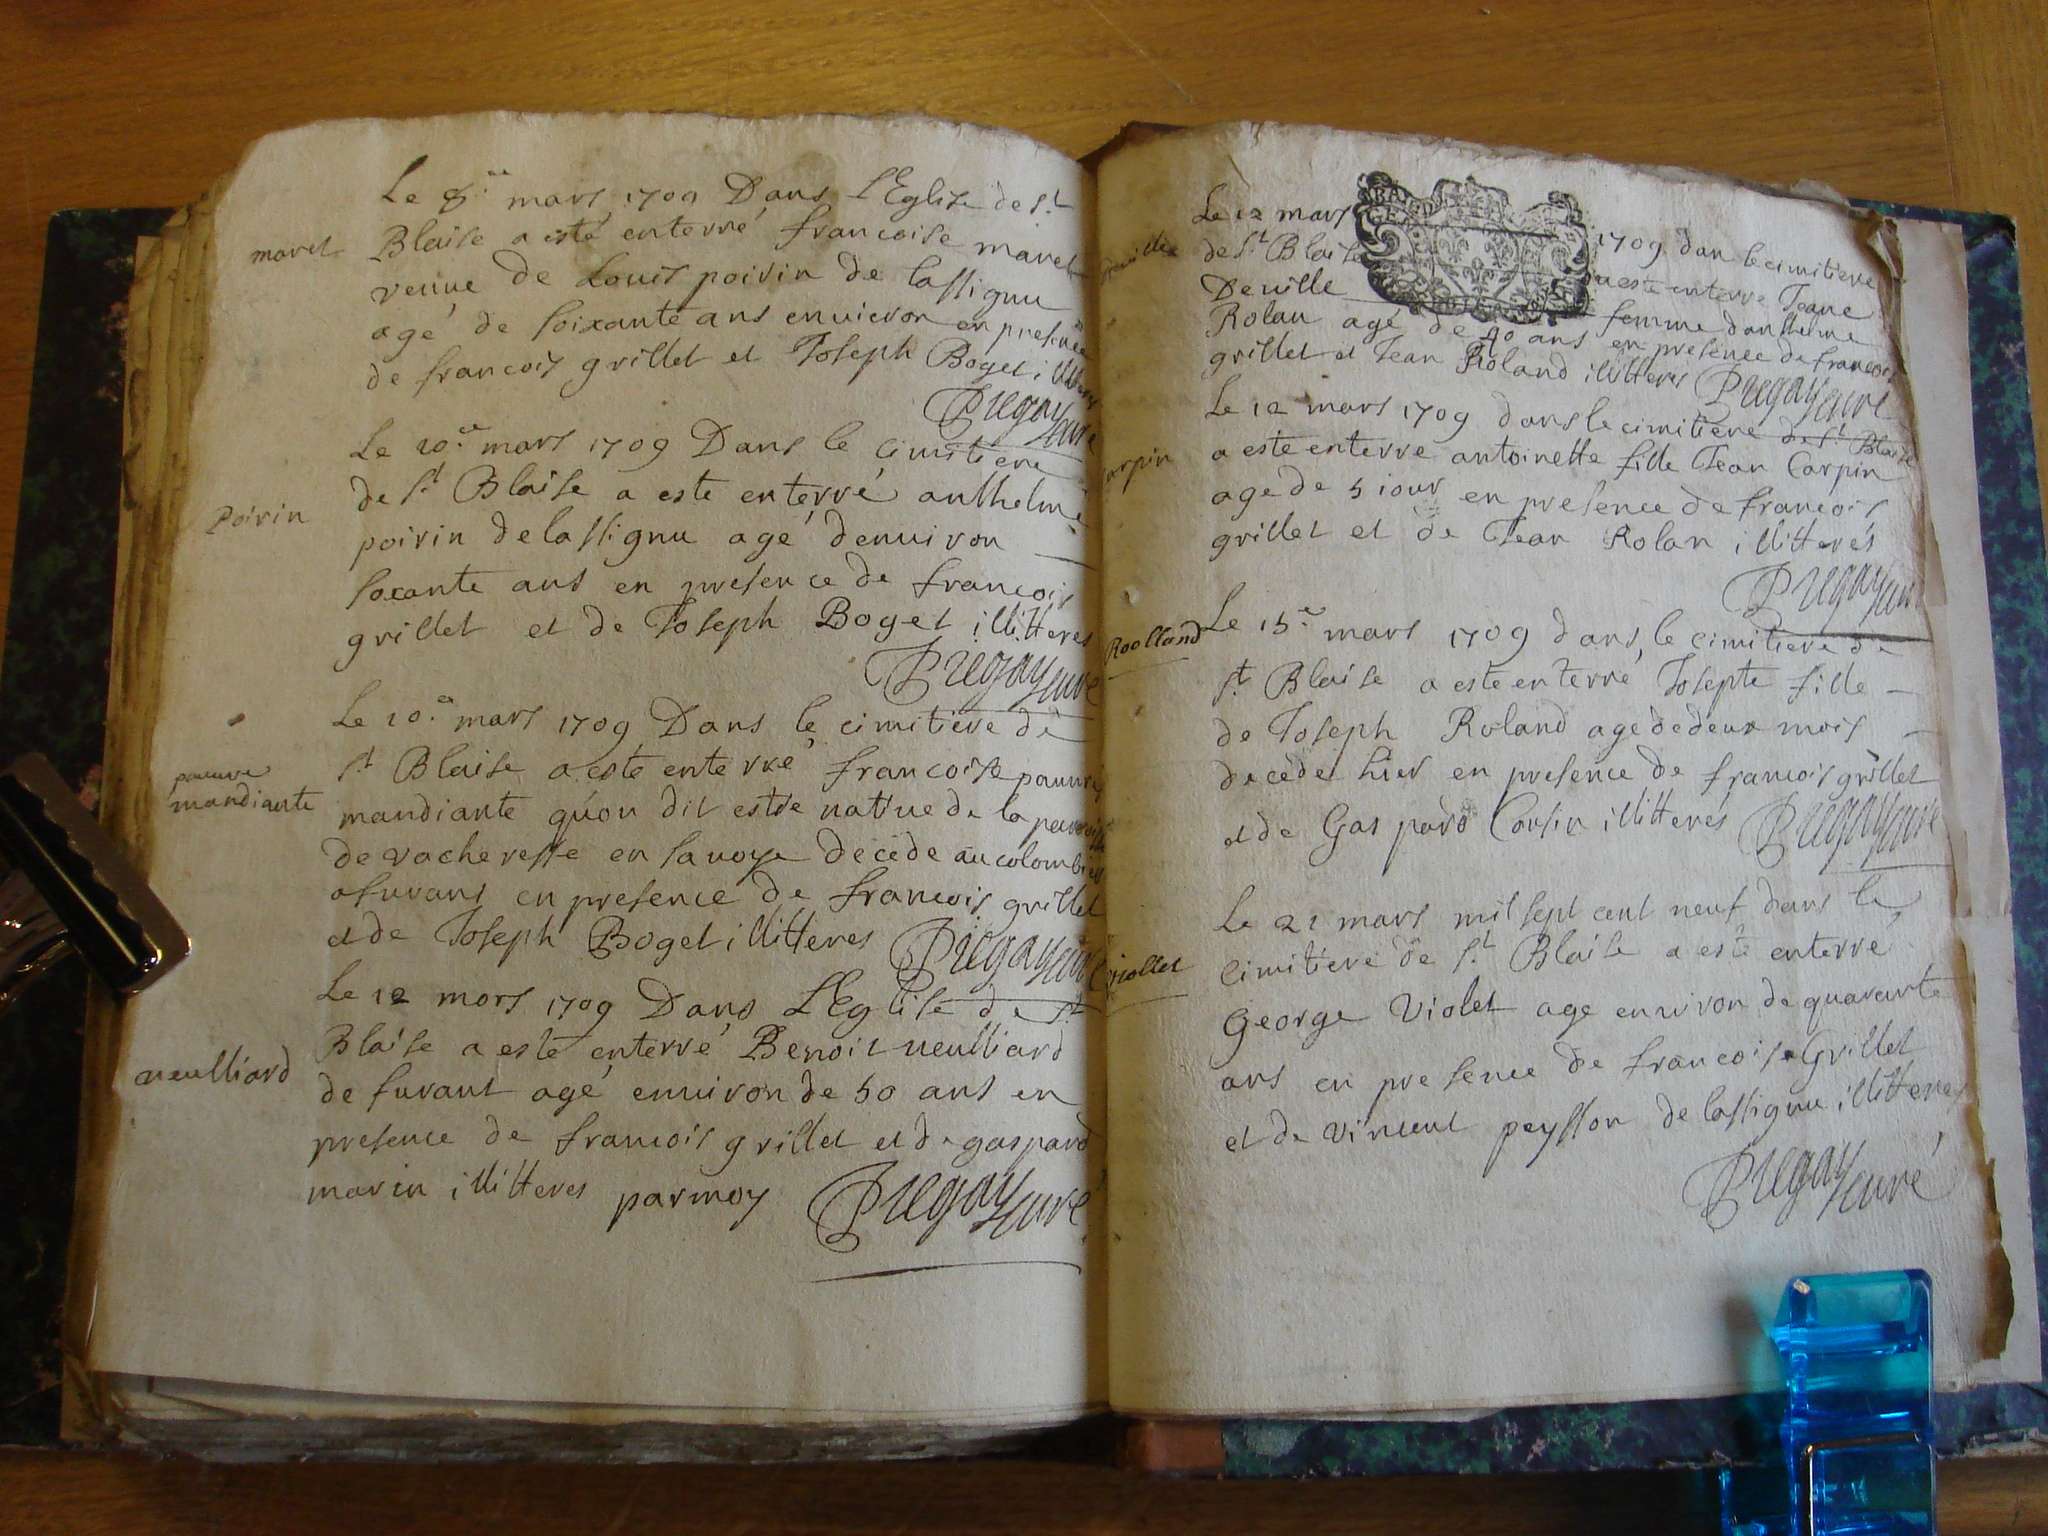 Le 8.ee mars 1709 Dans L'Eglise de St
maret
Blaise a esté enterré françoise maret
veuve de Louis poirin de lassignu
agé de soixante ans envieron en presence
de francois grillet et Joseph Boget illitteres
Pregay curé
Le 10.ee mars 1709 Dans le cimitiere
Poirin
de St Blaise a este enterré anthelme
poirin de lassignu agé denuiron
soxante ans en presence de francois
grillet et de Joseph Boget illitteres
Pregay curé
Le 10.e mars 1709 Dans le cimitiere de
pauure
mandiante
St Blaise a esté enterré francoise pauure
mandiante qu'on dit estre natiue de la parroisse
de vacheresse en sauoye decede au colombier
a furans en presence de francois grillet
et de Joseph Boget illitteres Pregay curé
Le 12 mars 1709 Dans L'Eglise de St
ueulliard
Blaise a esté enterré Benoit ueulliard
de furant agé enuiron de 50 ans en
presence de francois grillet et de gaspard
marin illitteres par moy Pregay curé
Le 12 mars 1709 dan le cimitiere
de St Blaise a este enterre Jeane
Deuille femme danthelme
Rolan agé de 40 ans en presence de francois
grillet et Jean Roland illitteres Pregay curé
Le 12 mars 1709 dans le cimitiere de St Blaise
Carpin
a este enterre antoinette fille Jean Carpin
age de 5 iour en presence de francois
grillet et de Jean Rolan illitterés
Pregay curé
Le 15.e mars 1709 dans le cimitiere de
Roolland
St Blaise a este enterré Josepte fille
de Joseph Roland age de deux mois
decede hier en presence de francois grillet
et de Gaspard Consin illitterés Pregay curé
Le 21 mars mil sept cent neuf dans le
violet
cimitiere de St Blaise a esté enterré
George Violet age enuiron de quarante
ans en presence de francoise Grillet
et de vincent peysson de lassignu illitteres
Pregay curé